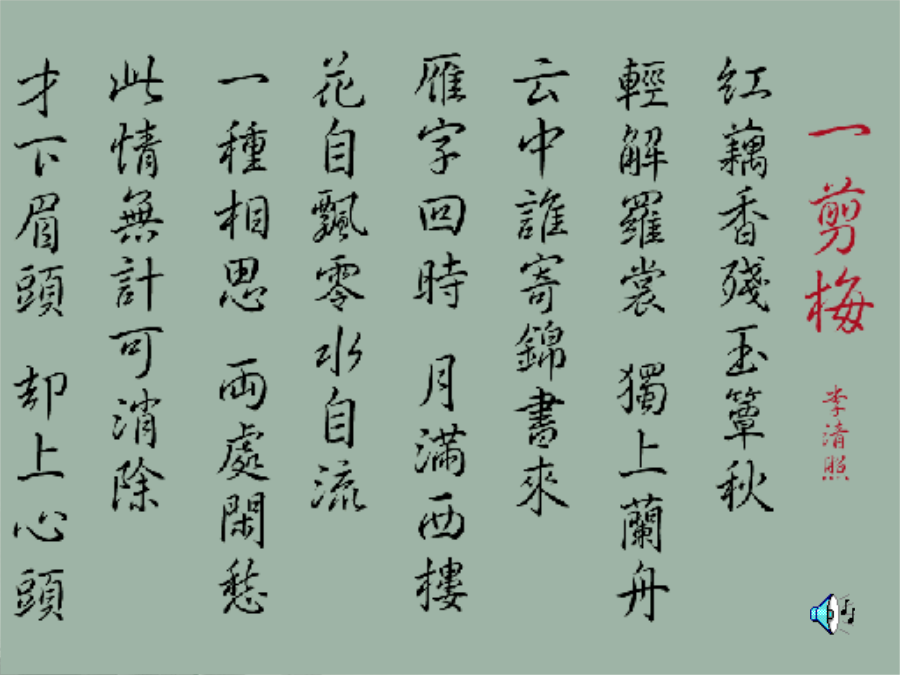 一剪梅
李清照
红藕香殘玉簟秋
輕解羅裳 獨上蘭舟
云中誰寄錦書來
雁字回時 月滿西樓
花自飄零水自流
一種相思 兩處閑愁
此情無計可消除
才下眉頭 却上心頭